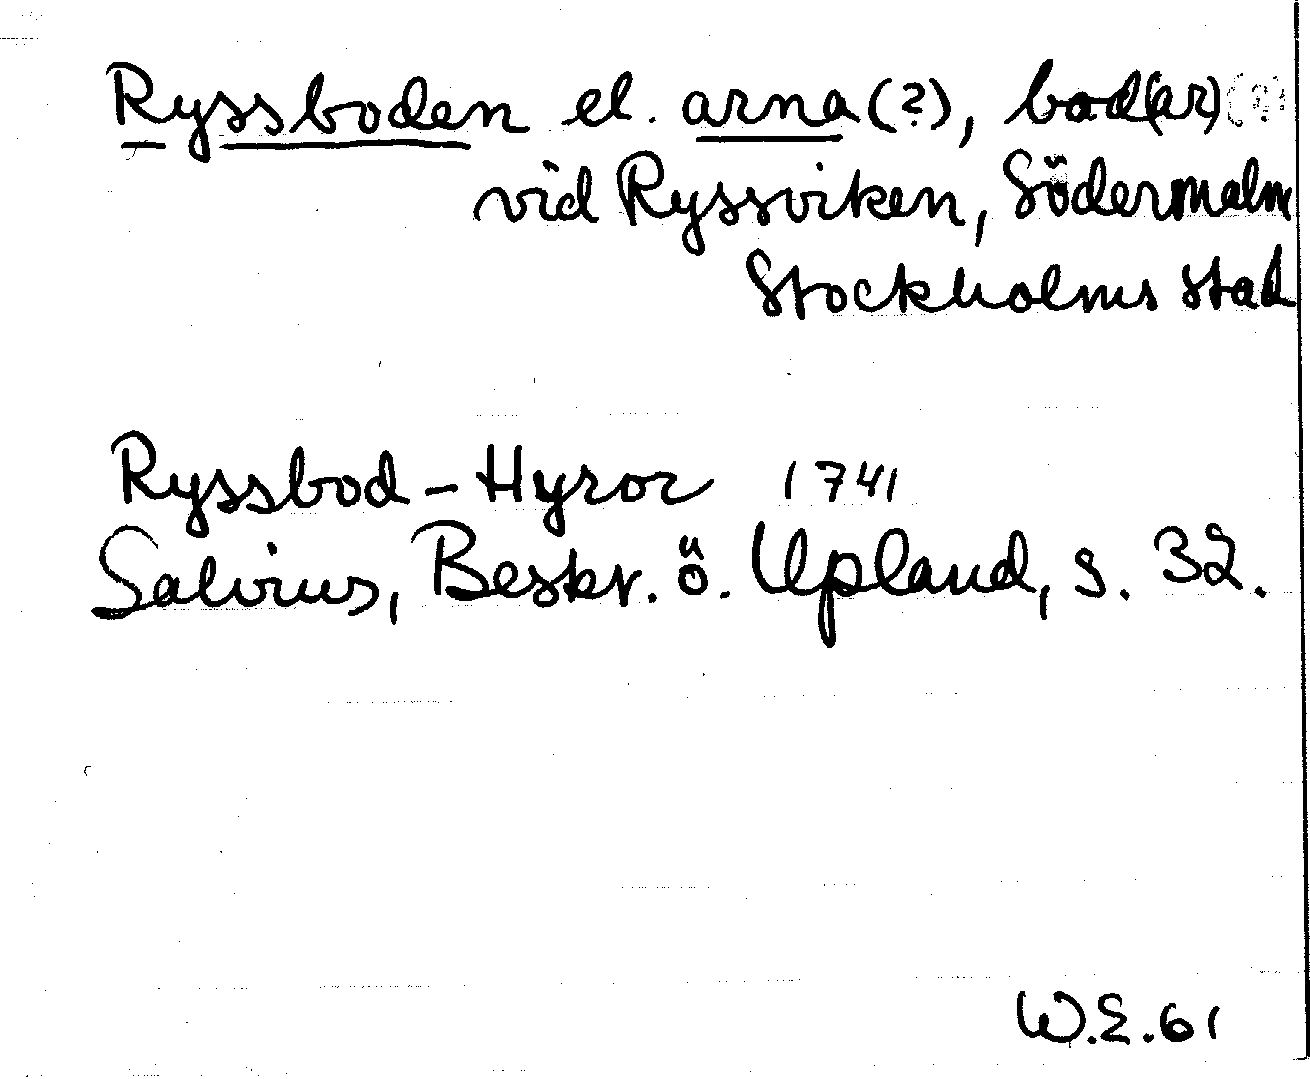 Ryssboden el. arna(?), bod(ar) (?)
vid Ryssviken, Södermalm
Stockholms stad
Ryssbod-Hyror 1741
Salvius, Beskr. ö. Upland, s. 32.
W.E.61